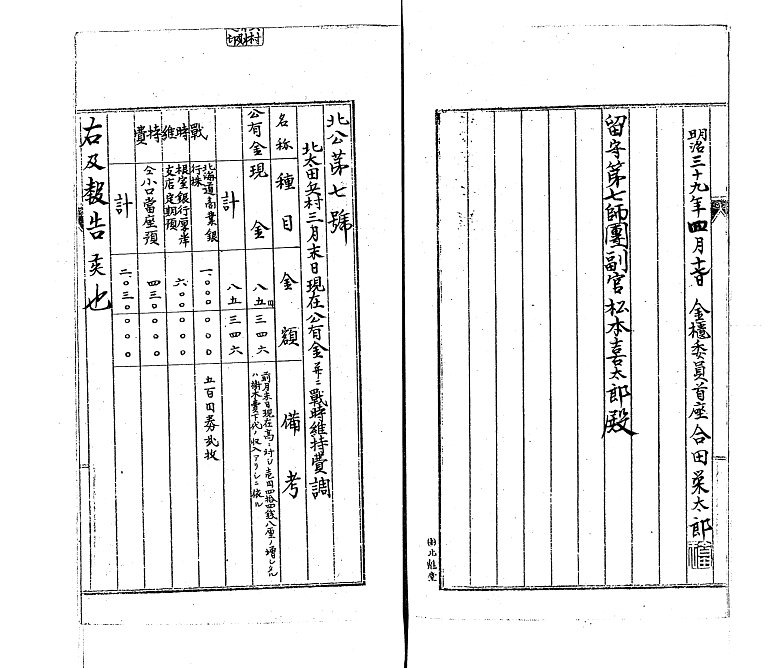 明治三十九年四月十日 金櫃委員首座 合田栄太郎
留守第七師團副官松本喜太郎殿
北公第七號
北太田兵村三月末日現在公有金并ニ戰時維持費調
名称 種目 金額 備考
公有金 現金 八五三四六 前月末日現在高ニ対シ壱円四拾四銭八厘ノ増シタル
ハ樹木費下代ノ収入アリシニ依ル
計 八五三四六
戰時維持費 北海道商業銀
行株 一〇〇〇〇〇〇 五百円券弐枚
根室銀行厚岸
支店定期預 六〇〇〇〇〇
仝小口當座預 四三〇〇〇〇
計 二〇三〇〇〇〇
右及報告候也